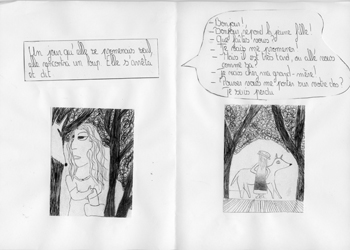 Un jour qu'elle se promenait seul,
elle rencontra un loup. Elle s'arrêta
et dit
- Bonjour !
- Bonjour répond la jeune fille !
- Que faites vous ?
- Je vais me promener
- Mais il est très tard, ou allé vous
comme ça ?
- je vais chez ma grand-mère !
- Pouvez vous me porter sur votre dos ?
Je suis perdu